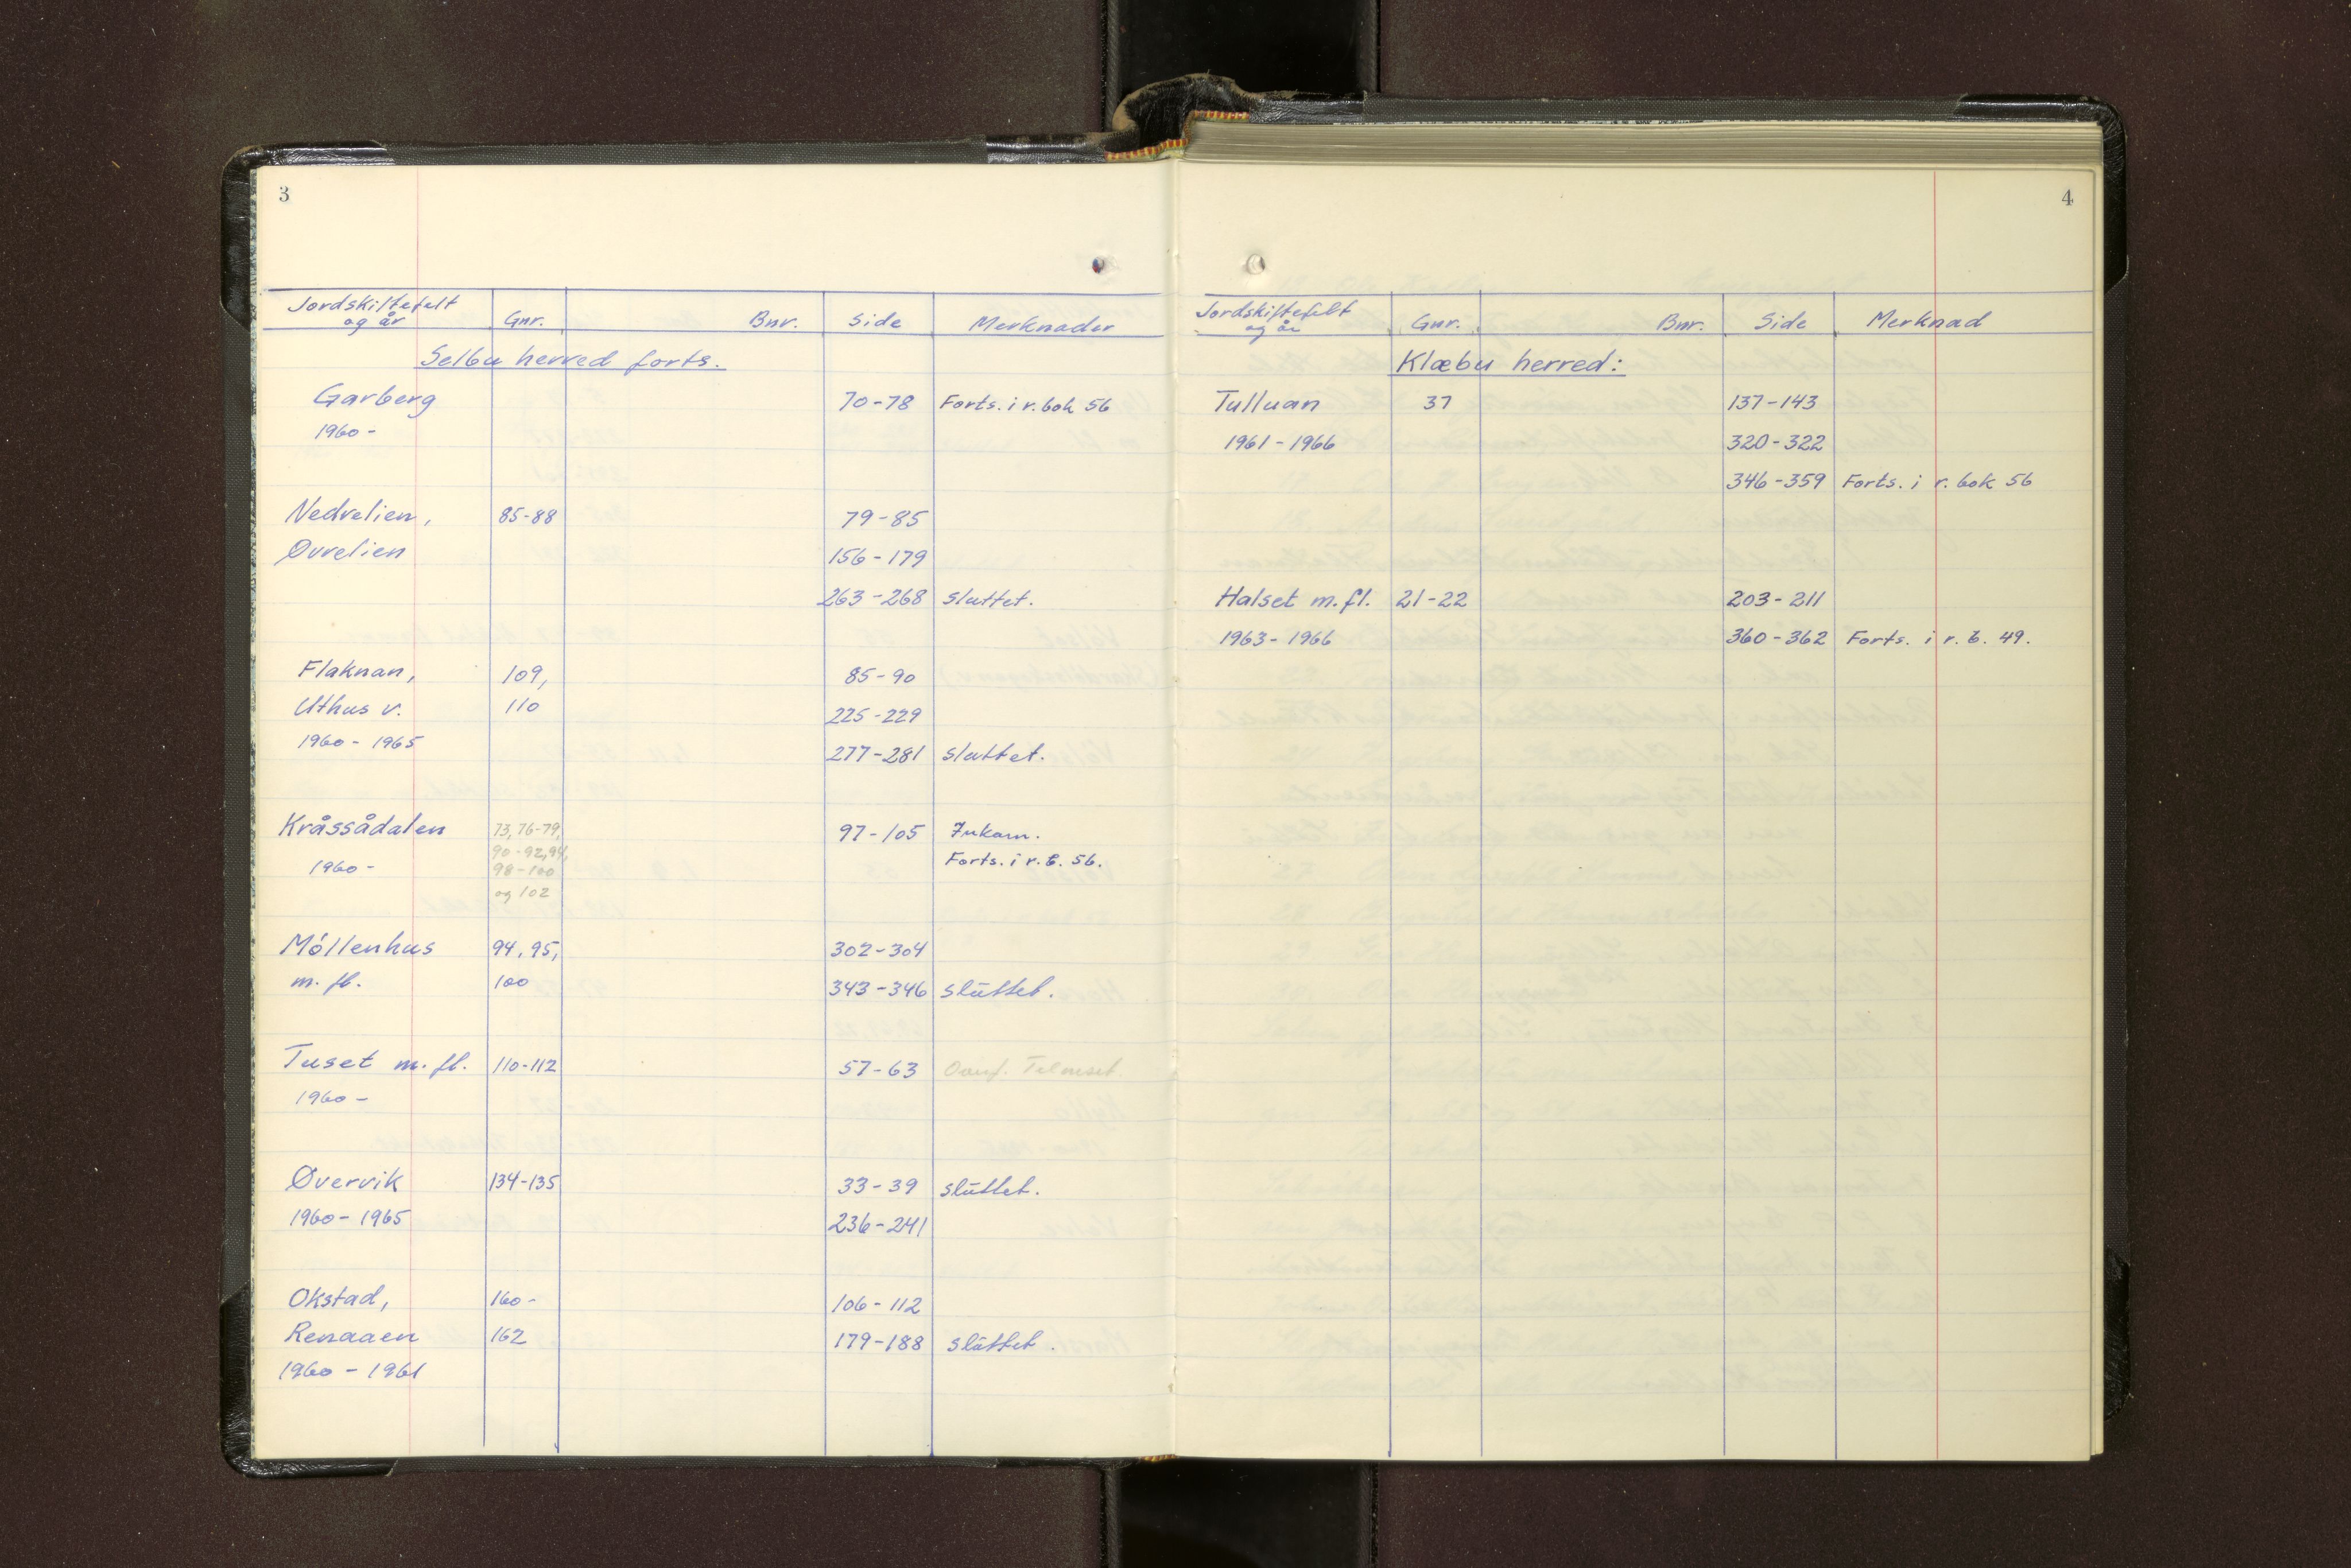 3
Jordskiftefelt og år Gnr. Bnr. Side Merknader
Selbu herred forts.
Garberg 70-78 Forts. i r. bok 56
1960 -
Nedrelien, 85-88 79-85
Øvrelien 156-179
263-268 sluttet.
Flaknan, 109, 85-90
Uthus v. 110 225-229
1960 - 1965 277-281 sluttet.
Kråssådalen 73, 76-79, 97-105 Inkam.
90-92, 94, Forts. i r. b. 56.
1960 - 98-100
og 102
Möllenhus 94, 95, 302-304
m. fl. 100 343-346 sluttet.
Tuset m. fl. 110-112 57-63
1960 -
Øvervik 134-135 33-39 sluttet.
1960 - 1965 236-241
Okstad, 160- 106-112
Renaaen 162 179-188 sluttet.
1960 - 1961
4
Jordskiftefelt og år Gnr. Bnr. Side Merknad
Klæbu herred:
Tulluan 37 137-143
1961 - 1966 320-322
346-359 Forts. i r. bok 56
Halset m. fl. 21-22 203-211
1963 - 1966 360-362 Forts. i r. b. 49.